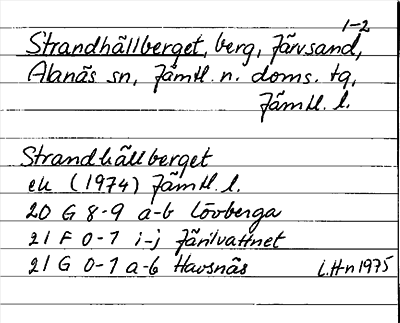 1-2
Strandhällberget, berg, Järvsand,
Alanäs sn, Jämtl. n. doms. tg,
Jämtl. l.
Strandhällberget
ek (1974) Jämtl. l.
20 G 8-9 a-b Lövberga
21 F 0-1 i-j Järilvattnet
21 G 0-1 a-b Havsnäs L.Hn 1975